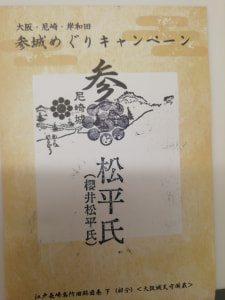 大阪・尼崎・岸和田
参城めぐりキャンペーン
参
尼崎城
松平氏
(櫻井松平氏)